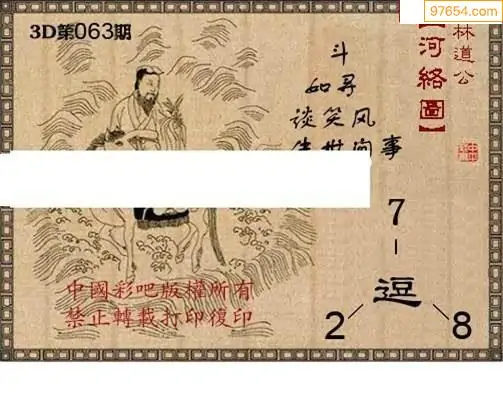 97654.com
3D第063期
林道公
河絡圖】
斗
如寻
谈笑风
事
7
逗
2 8
中國彩吧版權所有
禁止轉載打印復印